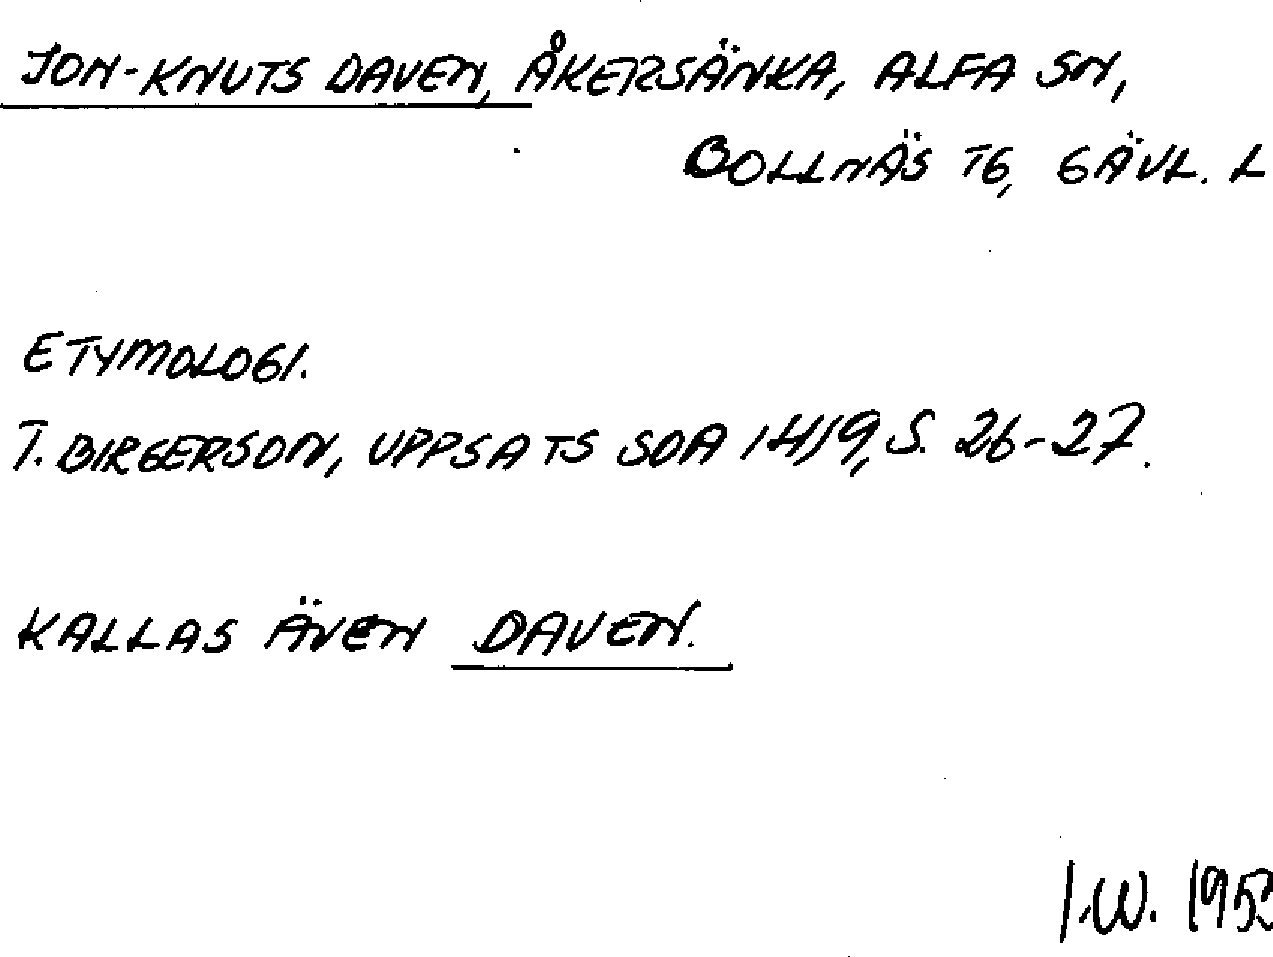 JON-KNUTS DAVEN, ÅKERSÄNKA, ALFA SN,
BOLLNÄS TG, GÄVL. L
ETYMOLOGI.
T. BIRGERSON, UPPSATS SOA 1419, S. 26-27.
KALLAS ÄVEN DAVEN.
I.W.